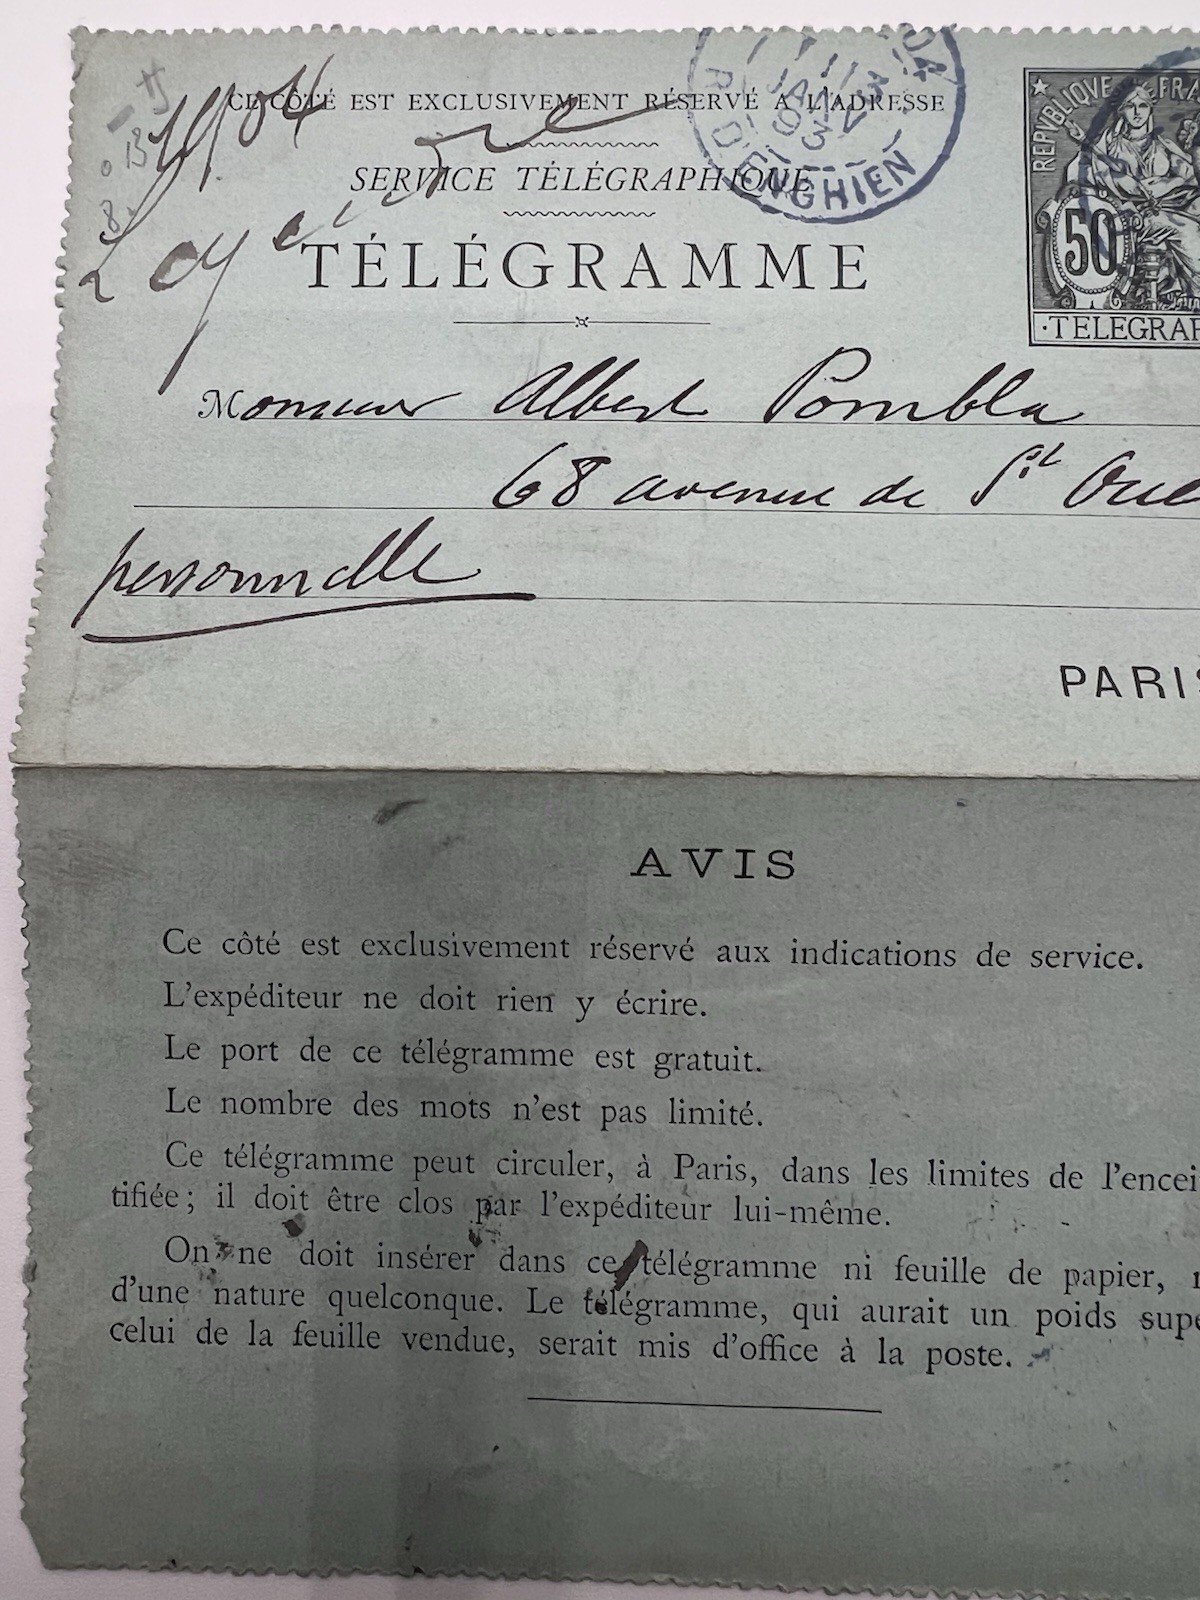 1904
CE CÔTÉ EST EXCLUSIVEMENT RÉSERVÉ A L'ADRESSE
SERVICE TÉLÉGRAPHIQUE
TÉLÉGRAMME
R. D'ENGHIEN
JANV
93
REPUBLIQUE FRA
50
TELEGRAP
Monsieur Albert Pombla
68 avenue de St Oue
personnelle
PARIS
AVIS
Ce côté est exclusivement réservé aux indications de service.
L'expéditeur ne doit rien y écrire.
Le port de ce télégramme est gratuit.
Le nombre des mots n'est pas limité.
Ce télégramme peut circuler, à Paris, dans les limites de l'encei
tifiée; il doit être clos par l'expéditeur lui-même.
On ne doit insérer dans ce télégramme ni feuille de papier, n
d'une nature quelconque. Le télégramme, qui aurait un poids supé
celui de la feuille vendue, serait mis d'office à la poste.